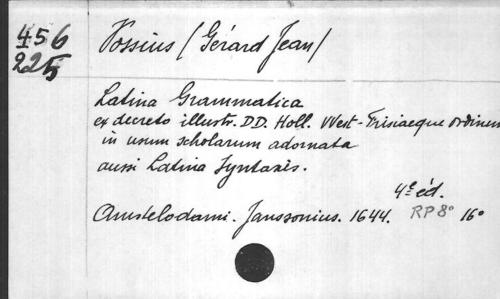 456
225
Vossius / (Gérard Jean /
Latina Grammatica
ex decreto illustr. D.D. Holl. West-Frisiaeque ordinum
in usum scholarum adornata
aussi Latina Syntaxis.
4e éd.
Amstelodami. Janssonius. 1644. RP 8° 16°